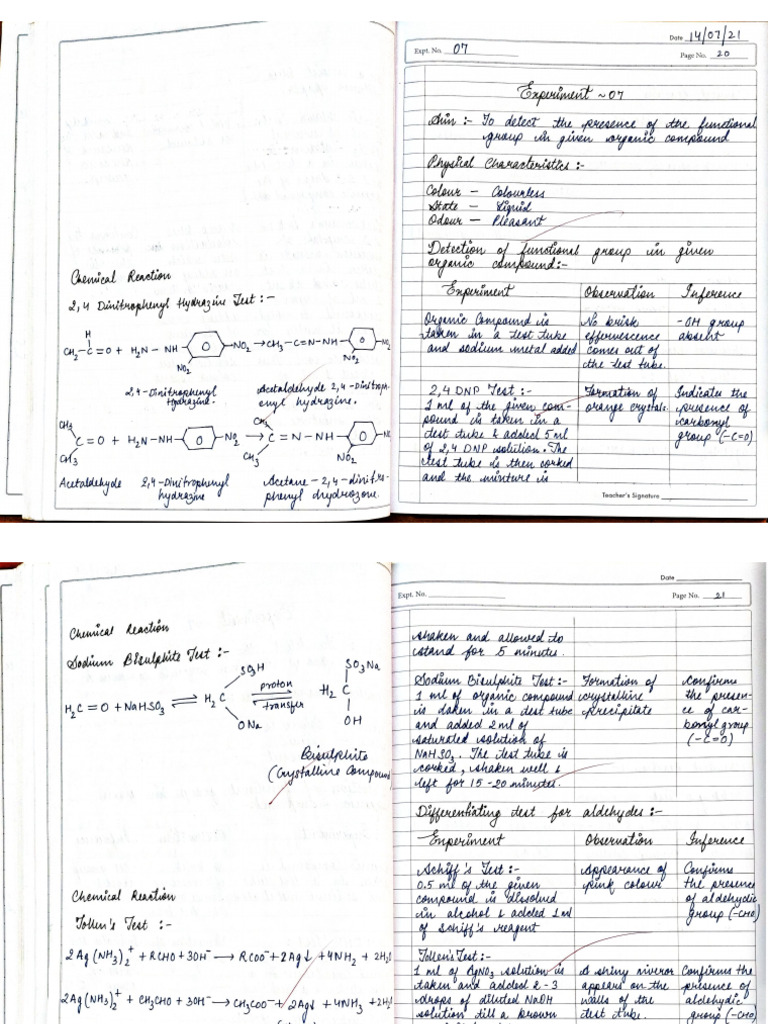 Chemical Reaction
2,4 Dinitrophenyl Hydrazine Test :-
H
CH3 – C = O + H2N – NH – O – NO2 → CH3 – C = N – NH – O – NO
NO2 NO2
2,4-Dinitrophenyl Hydrazine.
Acetaldehyde 2,4-Dinitroph-
enyl hydrazine.
CH3 CH3
C = O + H2N – NH – O – NO2 → C = N – NH – O – N
CH3 NO2 CH3 NO2
Acetaldehyde 2,4-Dinitrophenyl hydrazine
Acetane – 2,4-dinitro-
phenyl dhydrozone.
Date 14/07/21
Expt. No. 07
Page No. 20
Experiment ~ 07
Aim :- To detect the presence of the functional
group in given organic compound
Physical Characteristics :-
Colour – Colourless
State – Liquid
Odour – Pleasant
Detection of functional group in given
organic compound:-
Experiment Observation Inference
Organic Compound is No brisk -OH group
taken in a test tube effervescence absent
and sodium metal added comes out of
the test tube.
2,4 DNP Test :- Formation of Indicates the
1 ml of the given com- orange crystals. presence of
pound is taken in a carbonyl
test tube & added 5 ml group (-C=O)
of 2,4 DNP solution. The
test tube is then corked
and the mixture is
Teacher's Signature
Chemical Reaction
Sodium Bisulphite Test :-
SO3H SO3Na
H2C = O + NaHSO3 ⇌ H2C ⇌ proton transfer H2C
ONa OH
Bisulphite
(Crystalline Compound
Date
Expt. No.
Page No. 21
shaken and allowed to
stand for 5 minutes.
Sodium Bisulphite Test :- Formation of Confirms
1 ml of organic compound crystalline the presen-
is taken in a test tube precipitate ce of car-
and added 2 ml of bonyl group
saturated solution of (-C=O)
NaHSO3. The test tube is
corked, shaken well &
left for 15-20 minutes.
Differentiating test for aldehydes :-
Experiment Observation Inference
Schiff's Test :- Appearance of Confirms
0.5 ml of the given pink colour the presence
compound is dissolved of aldehydic
in alcohol & added 1 ml group (-CHO)
of Schiff's reagent
Tollen's Test :-
1 ml of AgNO3 solution is A shiny mirror Confirms the
taken and added 2-3 appears on the presence of
drops of diluted NaOH walls of the aldehydic
solution till a brown test tube. group (-CHO)
Chemical Reaction
Tollen's Test :-
2Ag(NH3)2+ + RCHO + 3OH– → RCOO– + 2Ag↓ + 4NH2 + 2H2
2Ag(NH3)2+ + CH3CHO + 3OH– → CH3COO– + 2Ag↓ + 4NH3 + 2H2